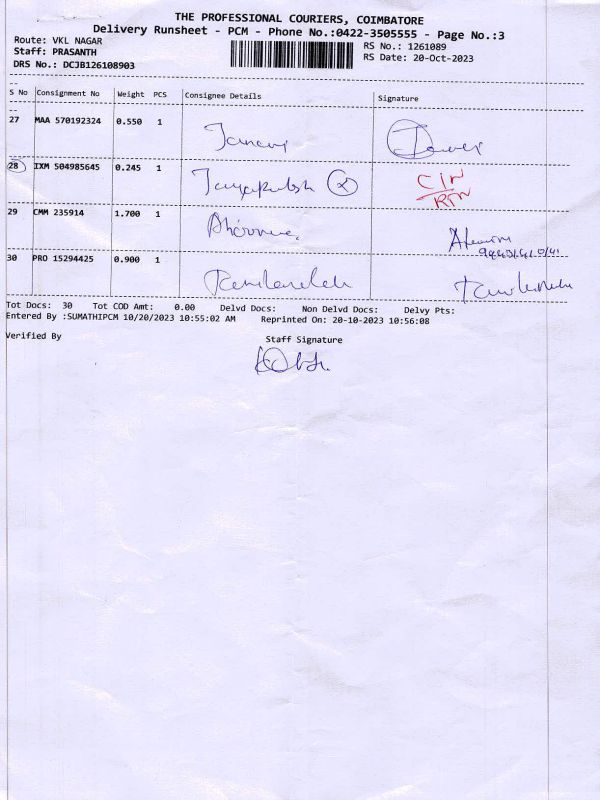 THE PROFESSIONAL COURIERS, COIMBATORE
Delivery Runsheet - PCM - Phone No.:0422-3505555 - Page No.:3
Route: VKL NAGAR
RS No.: 1261089
Staff: PRASANTH
RS Date: 20-Oct-2023
DRS No.: DCJB126108903
S No Consignment No Weight PCS Consignee Details Signature
27 MAA 570192324 0.550 1
28 IXM 504985645 0.245 1
29 CMM 235914 1.700 1
30 PRO 15294425 0.900 1
Tot Docs: 30 Tot COD Amt: 0.00 Delvd Docs: Non Delvd Docs: Delvy Pts:
Entered By :SUMATHIPCM 10/20/2023 10:55:02 AM Reprinted On: 20-10-2023 10:56:08
Verified By Staff Signature